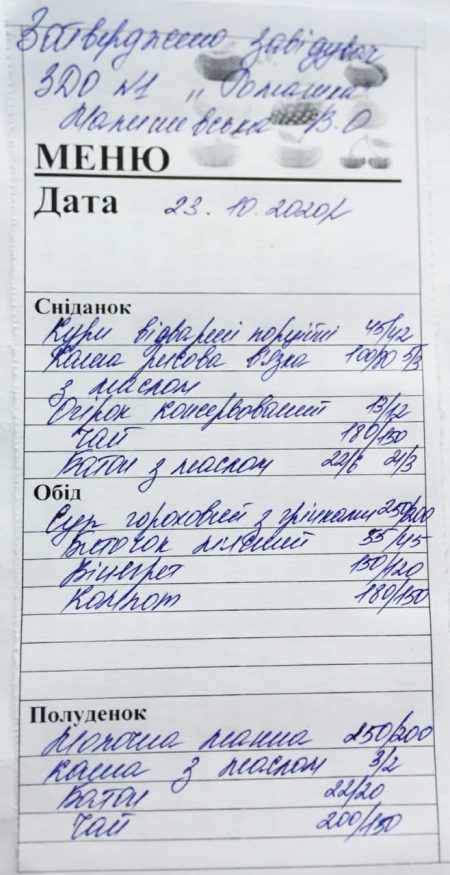 Затверджено завідувач
ЗДО №1 „Ромашка"
В.О
МЕНЮ
Дата 23.10.2020р
Сніданок
Кури відварені порційні 45/42
Каша рисова в'язка 100/80 5/3
з маслом
Огірок консервований 13/12
Чай 180/150
Батон з маслом 22/6 21/3
Обід
Суп гороховий з грінками 250/200
Биточок м'ясний 55/45
Вінегрет 150/120
Компот 180/150
Полуденок
Молочна манна 250/200
каша з маслом 3/2
Батон 22/20
Чай 200/150